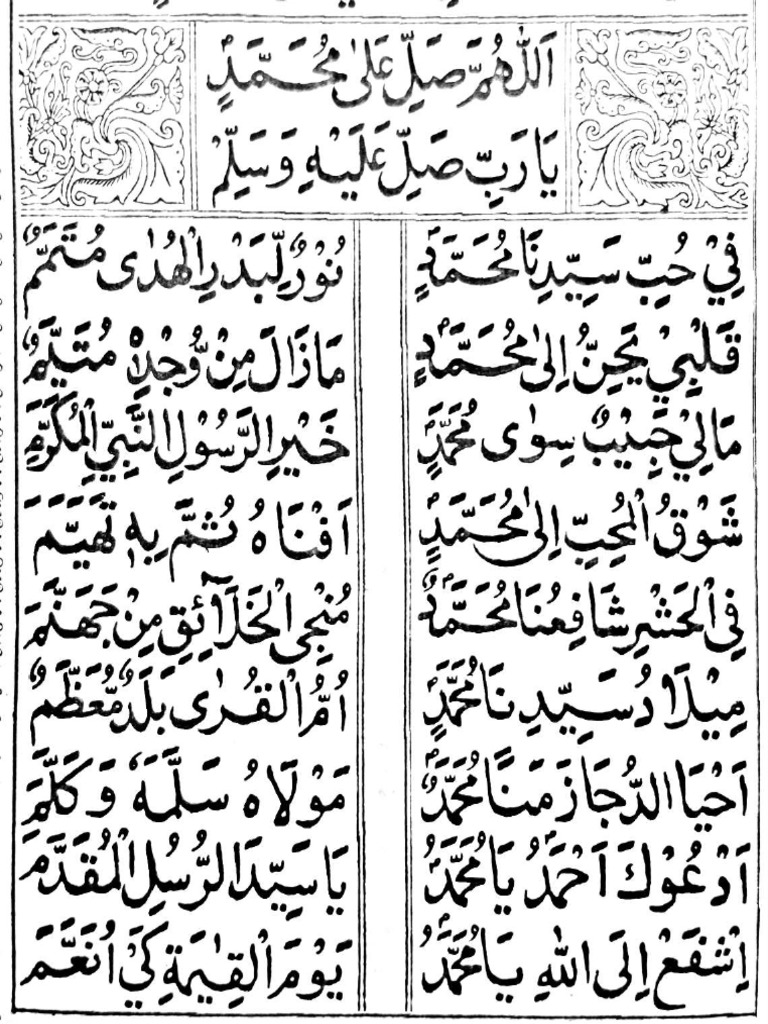 اَللّٰهُمَّ صَلِّ عَلٰى مُحَمَّدٍ
يَا رَبِّ صَلِّ عَلَيْهِ وَسَلِّمْ
فِيْ حُبِّ سَيِّدِنَا مُحَمَّدٍ نُوْرٌ لِّبَدْرِ الْهُدٰى مُتَمَّمٌ
قَلْبِيْ يَحِنُّ اِلٰى مُحَمَّدٍ مَازَالَ مِنْ وُّجْدِهْ مُتَيَّمٌ
مَالِيْ حَبِيْبٌ سِوٰى مُحَمَّدٍ خَيْرِ الرَّسُوْلِ النَّبِيِّ الْمُكَرَّمِ
شَوْقُ الْمُحِبِّ اِلٰى مُحَمَّدٍ اَفْنَاهُ ثُمَّ بِهٖ تَهَيَّمَ
فِي الْحَشْرِ شَافِعُنَا مُحَمَّدٌ مُنْجِي الْخَلَآئِقِ مِنْ جَهَنَّمَ
مِيْلَادُ سَيِّدِنَا مُحَمَّدٍ اُمُّ الْقُرٰى بَلَدٌ مُّعَظَّمٌ
اَحْيَا الدُّجَا زَمَنًا مُحَمَّدٌ مَوْلَاهُ سَلَّمَهٗ وَكَلَّمَ
اَدْعُوْكَ اَحْمَدُ يَا مُحَمَّدُ يَا سَيِّدَ الرُّسُلِ الْمُقَدَّمْ
اِشْفَعْ اِلَى اللّٰهِ يَا مُحَمَّدُ يَوْمَ الْقِيٰمَةِ كَيْ اُنَعَّمَ